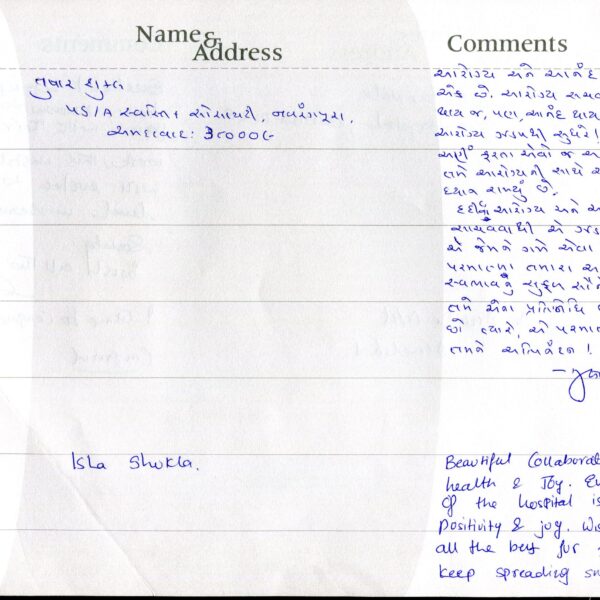 Name &
Address
Comments
તુષાર શુક્લ
૫૬/A સ્વસ્તિક સોસાયટી, નવરંગપુરા.
અમદાવાદ: ૩૮૦૦૦૯
આરોગ્ય અને આનંદ
એક છે. આરોગ્ય
થાય જ, પણ, આનંદ થાય
આરોગ્ય ઝડપથી સુધરે!
અહીં ફરતા એવો જ
તમે આરોગ્યની સાથે
ધ્યાન રાખ્યું છે.
દર્દીનું આરોગ્ય અને
સાચવવાથી એ
એ જેમને ગમે એવા
પરમાત્મા તમારા
સ્વભાવનું સુફળ સૌને
તમે એના પ્રતિનિધિ
છો ત્યારે, એ
તમને અભિનંદન!
Isha Shukla.
Beautiful Collaborat
health & Joy. Ev
Of the hospital is
Positivity & joy. Wis
all the best for
keep spreading sm